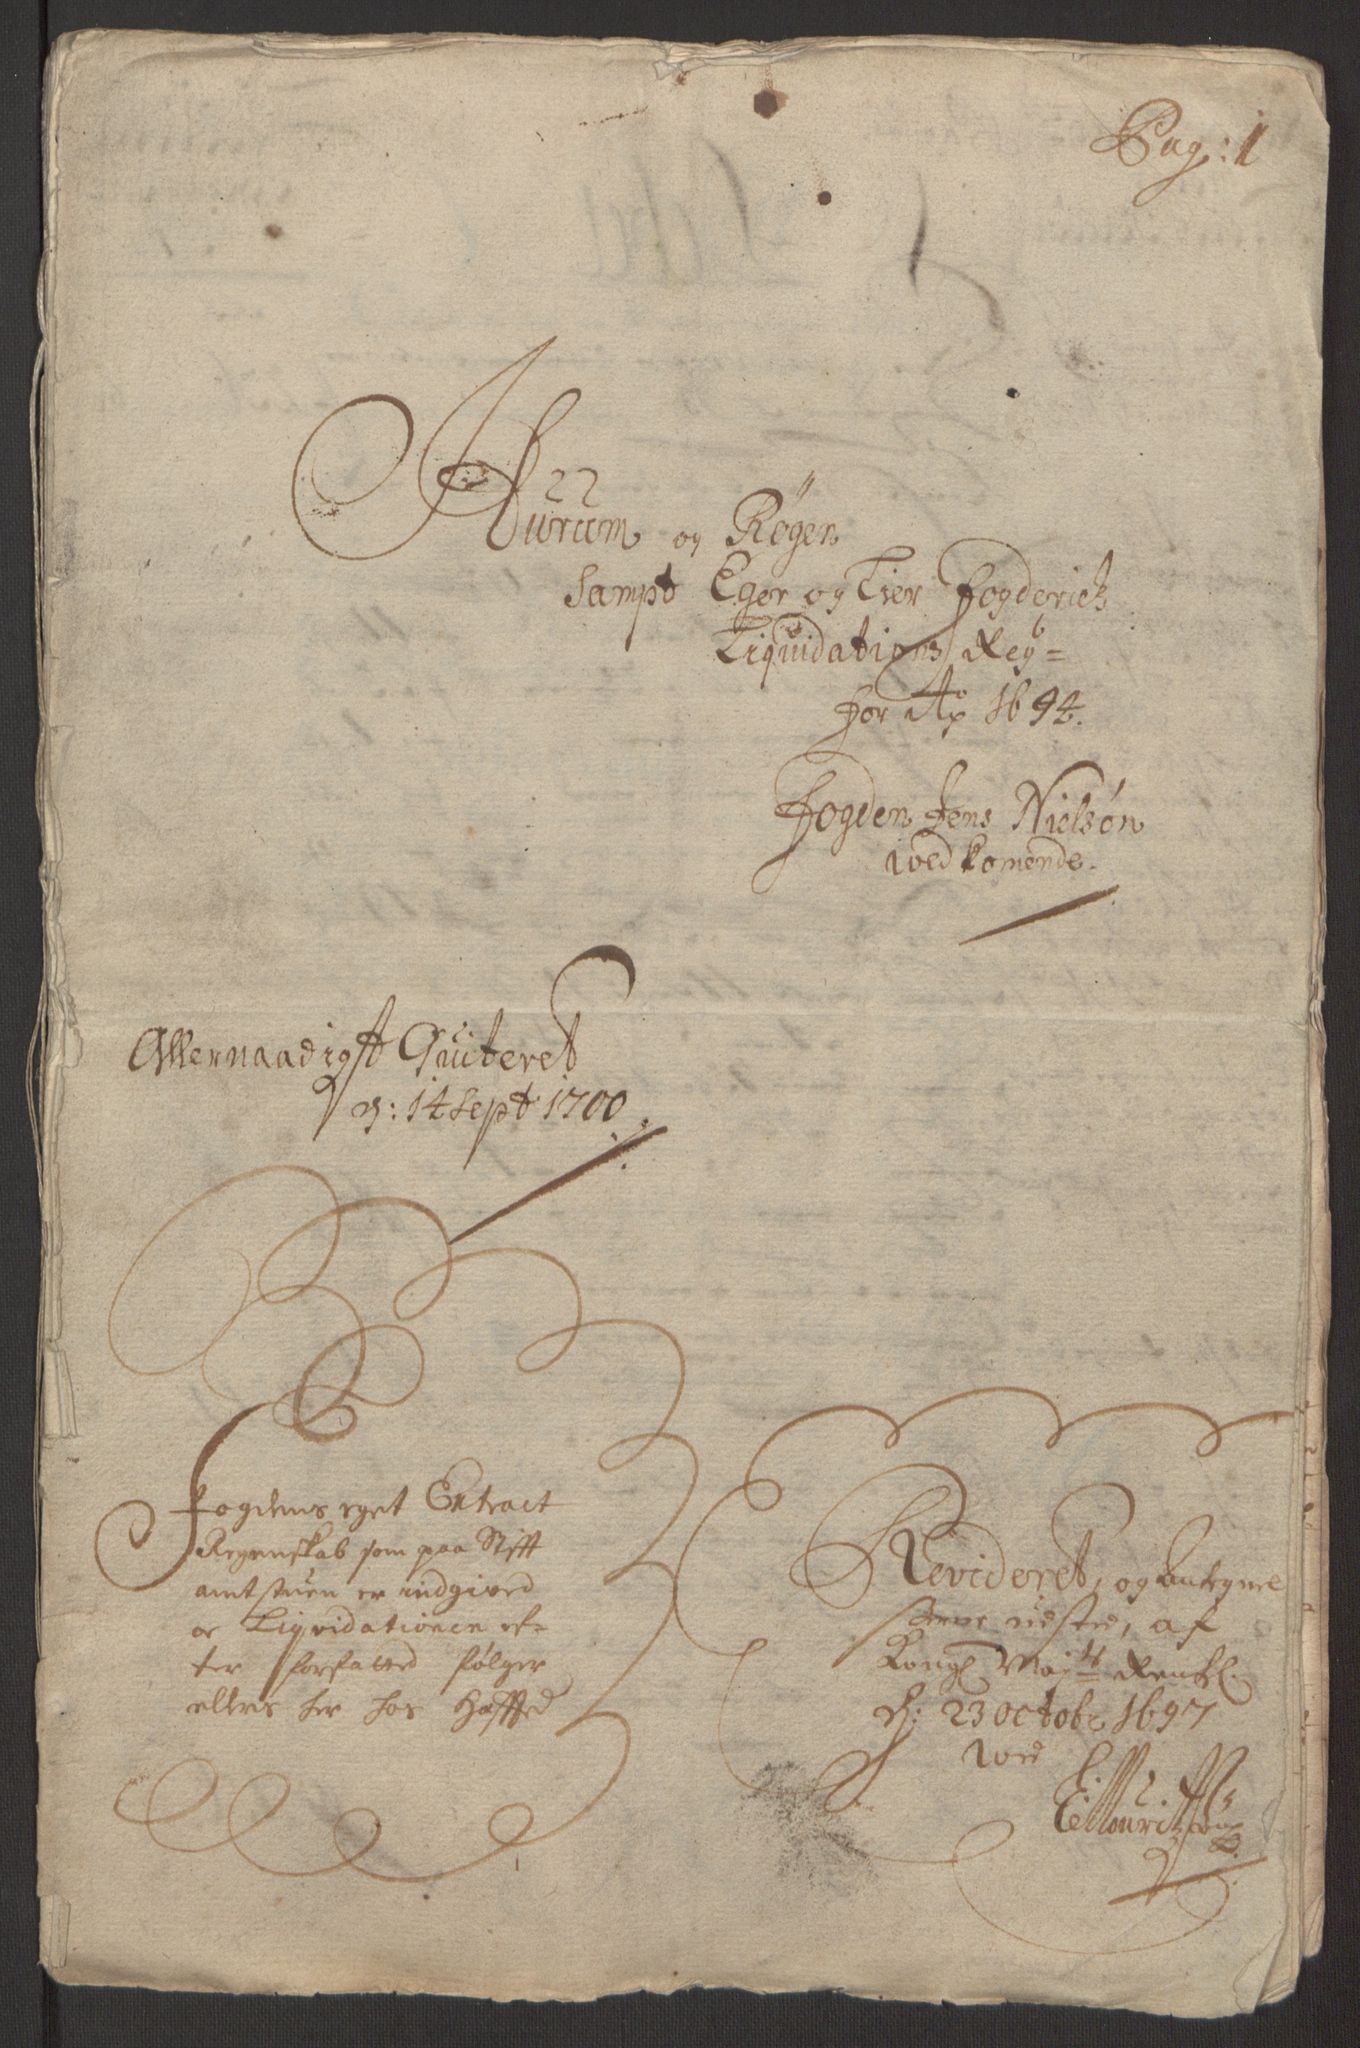 Pag: 1
Hurum og Røgen
Sampt Eger og Lier Fogderies
Liquidations Reg=
for Ao 1694.
Fogden Jens Nielsøn
wedkomende.
Allernaadigst Quiteret
d: 14 Sept 1700
Fogdens eget Extract
Regenskab som paa Stifft
amtstuen er indgived
oc Liqvidationen ef=
ter forfatted følger
ellers her hos Hæffted
Revideret, og Antegnel
serne udsted, af
Kongl May: Rentk.
d: 23 Octobr 1697
wed